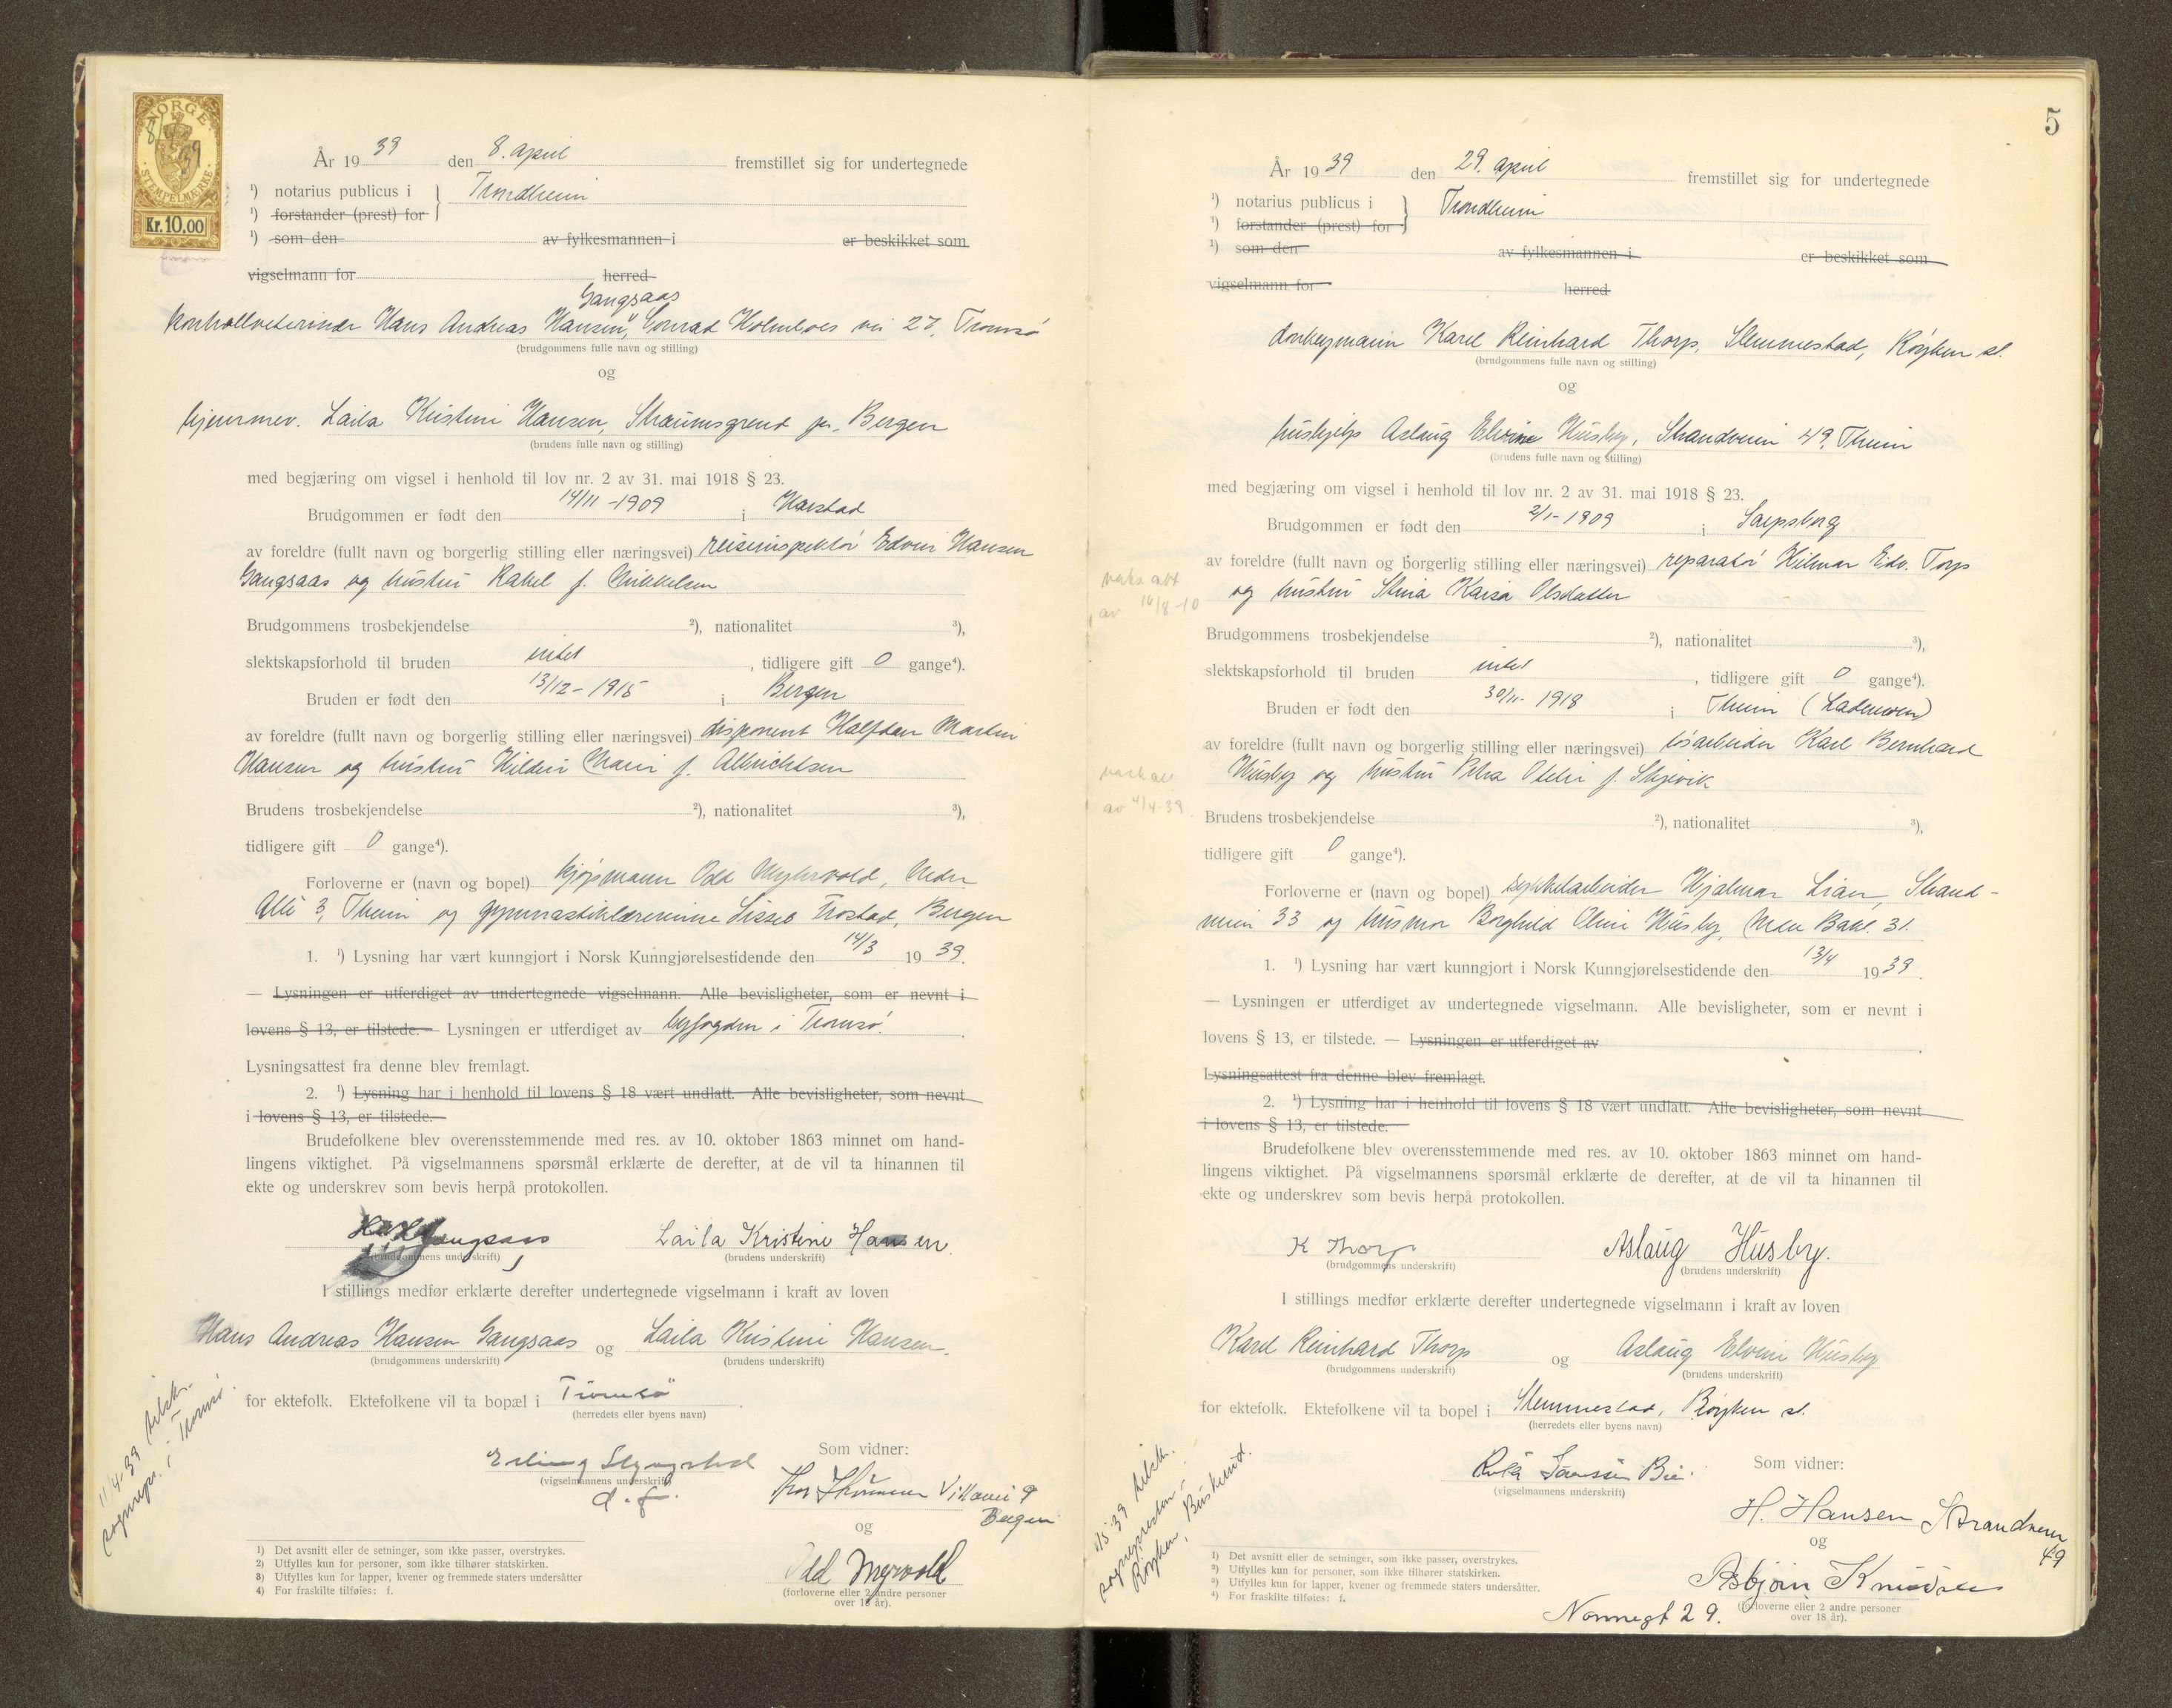 NORGE
8/4 39
STEMPELMÆRKE
Kr. 10,00
År 19 39 den 8. april fremstillet sig for undertegnede
¹) notarius publicus i Trondheim
¹) forstander (prest) for
¹) som den av fylkesmannen i er beskikket som
vigselmann for herred
Gangsaas
kontrollveterinær Hans Andreas Hansen, Conrad Holmboes vei 27, Tromsø
(brudgommens fulle navn og stilling)
og
hjemmev. Laila Kristine Hansen, Straumsgrend pr. Bergen
(brudens fulle navn og stilling)
med begjæring om vigsel i henhold til lov nr. 2 av 31. mai 1918 § 23.
Brudgommen er født den 14/11 - 1909 i Harstad
av foreldre (fullt navn og borgerlig stilling eller næringsvei) reiseinspektør Edvin Hansen
Gangsaas og hustru Rakel f. Mikkelsen
Brudgommens trosbekjendelse ²), nationalitet ³),
slektskapsforhold til bruden intet, tidligere gift 0 gange⁴).
Bruden er født den 13/12 - 1915 i Bergen
av foreldre (fullt navn og borgerlig stilling eller næringsvei) disponent Halfdan Martin
Hansen og hustru Hildur Marie f. Albrichtsen
Brudens trosbekjendelse ²), nationalitet ³),
tidligere gift 0 gange⁴).
Forloverne er (navn og bopel) kjøpmann Odd Myhrvold, Nedre
Allé 3, Theim og gymnastiklærerinne Lisseb Frostad, Bergen
1. ¹) Lysning har vært kunngjort i Norsk Kunngjørelsestidende den 14/3 19 39.
— Lysningen er utferdiget av undertegnede vigselmann. Alle bevisligheter, som er nevnt i
lovens § 13, er tilstede. — Lysningen er utferdiget av byfogden i Tromsø.
Lysningsattest fra denne blev fremlagt.
2. ¹) Lysning har i henhold til lovens § 18 vært undlatt. Alle bevisligheter, som nevnt
i lovens § 13, er tilstede.
Brudefolkene blev overensstemmende med res. av 10. oktober 1863 minnet om hand-
lingens viktighet. På vigselmannens spørsmål erklærte de derefter, at de vil ta hinannen til
ekte og underskrev som bevis herpå protokollen.
Gangsaas Laila Kristine Hansen.
(brudgommens underskrift) (brudens underskrift)
I stillings medfør erklærte derefter undertegnede vigselmann i kraft av loven
Hans Andreas Hansen Gangsaas og Laila Kristine Hansen.
(brudgommens underskrift) (brudens underskrift)
for ektefolk. Ektefolkene vil ta bopæl i Tromsø.
(herredets eller byens navn)
11/4-39 tilskr.
sognepr. i Tromsø.
Som vidner:
Erling
(vigselmannens underskrift)
d. f.
Villavei 9
Bergen
og
Odd Myrvold
(forloverne eller 2 andre personer
over 18 år).
1) Det avsnitt eller de setninger, som ikke passer, overstrykes.
2) Utfylles kun for personer, som ikke tilhører statskirken.
3) Utfylles kun for lapper, kvener og fremmede staters undersåtter
4) For fraskilte tilføies: f.
5
År 19 39 den 29. april fremstillet sig for undertegnede
¹) notarius publicus i Trondheim
¹) forstander (prest) for
¹) som den av fylkesmannen i er beskikket som
vigselmann for herred
donkeymann Karel Reinhard Thorp, Slemmestad, Røyken st.
(brudgommens fulle navn og stilling)
og
hushjelp Aslaug Elvine Husby, Strandveien 49, Theim
(brudens fulle navn og stilling)
med begjæring om vigsel i henhold til lov nr. 2 av 31. mai 1918 § 23.
Brudgommen er født den 2/1 - 1909 i Sarpsborg
av foreldre (fullt navn og borgerlig stilling eller næringsvei) reparatør Hilmar Edv. Torp
og hustru Stina Kaisa Olsdatter
av 16/8-10
Brudgommens trosbekjendelse ²), nationalitet ³),
slektskapsforhold til bruden intet, tidligere gift 0 gange⁴).
Bruden er født den 30/11 - 1918 i Theim (Lademoen)
av foreldre (fullt navn og borgerlig stilling eller næringsvei) løsarbeider Karl Bernhard
Husby og hustru Petra Otelie f. Skjevik
av 4/4-39
Brudens trosbekjendelse ²), nationalitet ³),
tidligere gift 0 gange⁴).
Forloverne er (navn og bopel) sykkelarbeider Hjalmar Lian, Strand-
veien 33 og husmor Borghild Oline Husby, Nedre Bakl. 31.
1. ¹) Lysning har vært kunngjort i Norsk Kunngjørelsestidende den 13/4 19 39.
— Lysningen er utferdiget av undertegnede vigselmann. Alle bevisligheter, som er nevnt i
lovens § 13, er tilstede. — Lysningen er utferdiget av
Lysningsattest fra denne blev fremlagt.
2. ¹) Lysning har i henhold til lovens § 18 vært undlatt. Alle bevisligheter, som nevnt
i lovens § 13, er tilstede.
Brudefolkene blev overensstemmende med res. av 10. oktober 1863 minnet om hand-
lingens viktighet. På vigselmannens spørsmål erklærte de derefter, at de vil ta hinannen til
ekte og underskrev som bevis herpå protokollen.
K Thorp Aslaug Husby.
(brudgommens underskrift) (brudens underskrift)
I stillings medfør erklærte derefter undertegnede vigselmann i kraft av loven
Karel Reinhard Thorp og Aslaug Elvine Husby
(brudgommens underskrift) (brudens underskrift)
for ektefolk. Ektefolkene vil ta bopel i Slemmestad, Røyken st.
(herredets eller byens navn)
1/5-39 tilskr.
sognepresten i
Røyken, Buskerud.
Som vidner:
(vigselmannens underskrift)
H. Hansen Strandveien
49
og
Asbjørn Knudsen
(forloverne eller 2 andre personer
over 18 år).
Nonnegt 29.
1) Det avsnitt eller de setninger, som ikke passer, overstrykes.
2) Utfylles kun for personer, som ikke tilhører statskirken.
3) Utfylles kun for lapper, kvener og fremmede staters undersåtter.
4) For fraskilte tilføies: f.